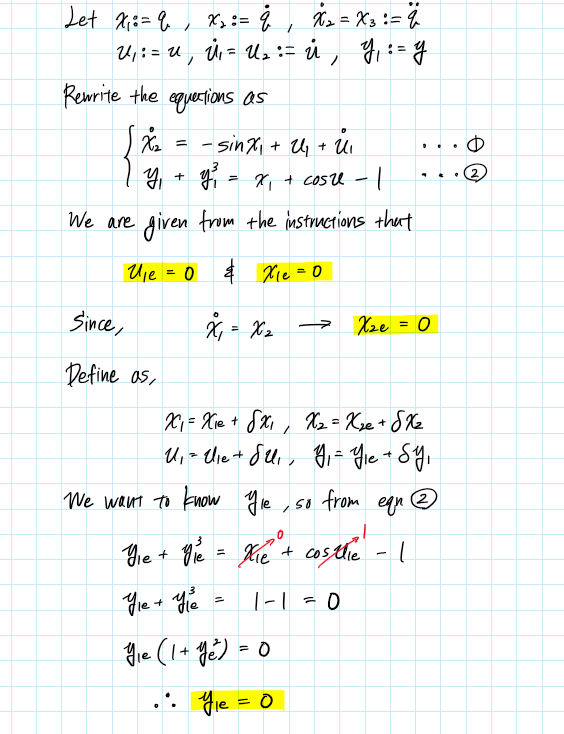 Let x₁ := q , x₂ := q̇ , ẋ₂ = x₃ := q̈
u₁ := u , u̇₁ = u₂ := u̇ , y₁ := y
Rewrite the equations as
ẋ₂ = - sin x₁ + u₁ + u̇₁ ... ①
y₁ + y₁³ = x₁ + cos u - 1 ... ②
We are given from the instructions that
u₁e = 0 & x₁e = 0
Since, ẋ₁ = x₂ → x₂e = 0
Define as,
x₁ = x₁e + δx₁ , x₂ = x₂e + δx₂
u₁ = u₁e + δu₁ , y₁ = y₁e + δy₁
We want to know y₁e , so from eqn ②
y₁e + y₁e³ = x₁e 0 + cos u₁e 1 - 1
y₁e + y₁e³ = 1 - 1 = 0
y₁e (1 + ye²) = 0
∴ y₁e = 0